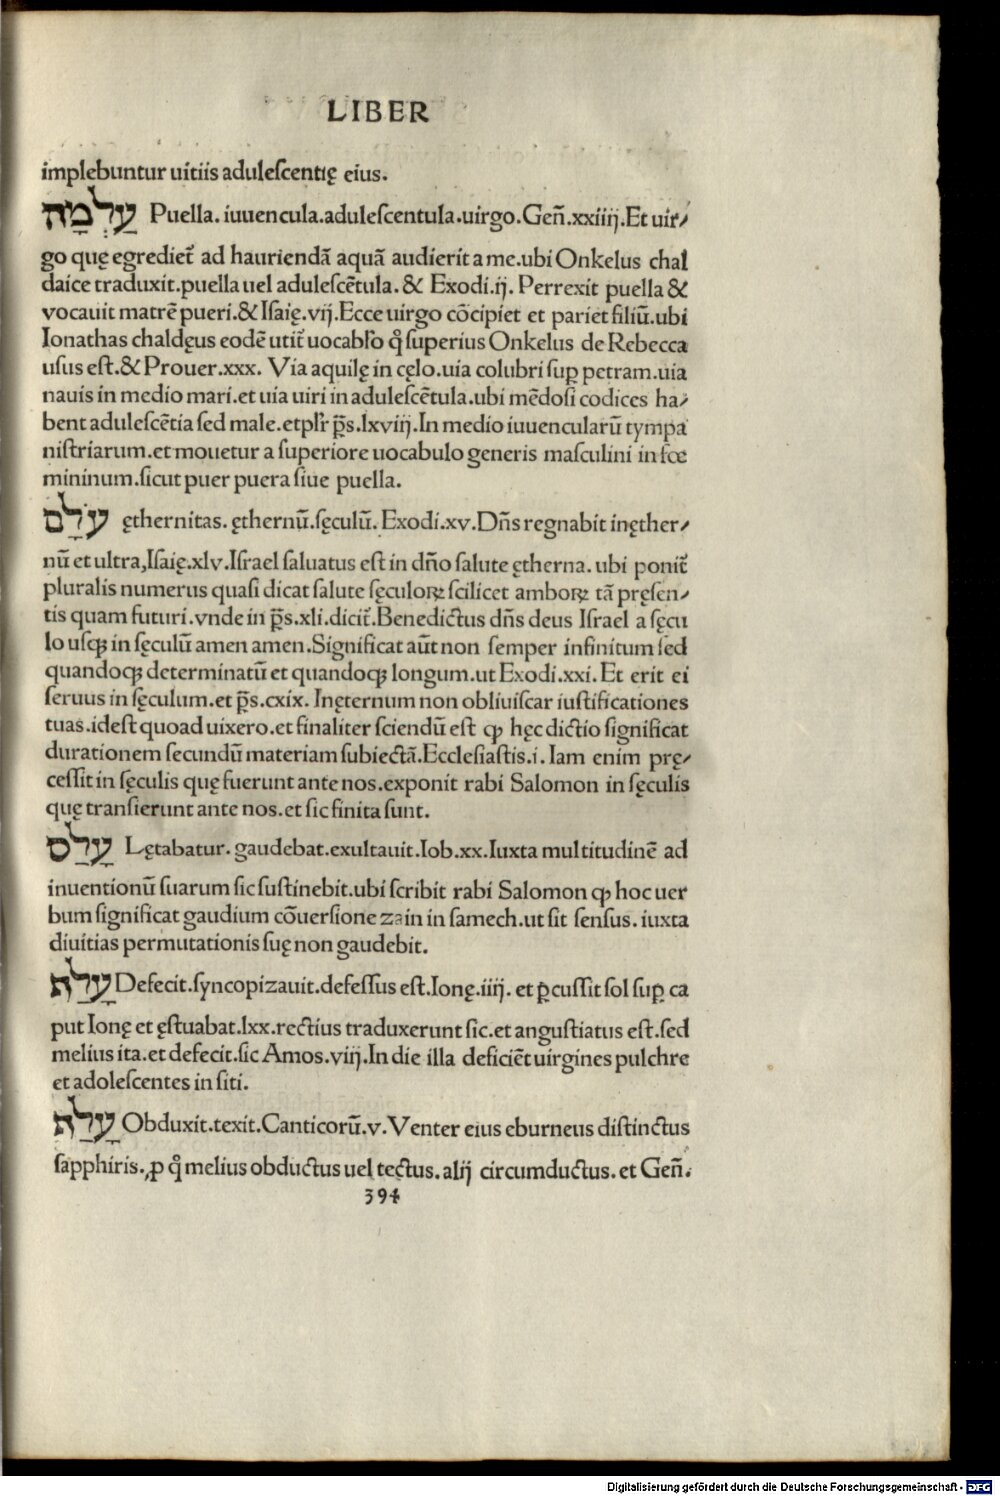 LIBER
implebuntur uitiis adulescentię eius.
עַלְמָה Puella. iuuencula.adulescentula.uirgo.Geñ.xxiiij.Et uir⸗
go quę egrediet̃ ad hauriendã aquã audierit a me.ubi Onkelus chal
daice traduxit.puella uel adulescẽtula. & Exodi.ij. Perrexit puella &
vocauit matrẽ pueri.& Isaię.vij.Ecce uirgo cõcipiet et pariet filiũ.ubi
Ionathas chaldęus eodẽ utit̃ uocabl̃o q̃ superius Onkelus de Rebecca
usus est.& Prouer.xxx. Via aquilę in cęlo.uia colubri suꝑ petram.uia
nauis in medio mari.et uia uiri in adulescẽtula.ubi mẽdosi codices ha⸗
bent adulescẽtia sed male.et pl̃r p̃s.lxviij.In medio iuuencularũ tympa
nistriarum.et mouetur a superiore uocabulo generis masculini in fœ
mininum.sicut puer puera siue puella.
עֹלָם ęthernitas. ęthernũ.sęculũ. Exodi.xv.Dñs regnabit in ęther⸗
nũ et ultra,Isaię.xlv.Israel saluatus est in dño salute ętherna. ubi ponit̃
pluralis numerus quasi dicat salute sęculoꝝ scilicet amboꝝ tã pręsen⸗
tis quam futuri.vnde in p̃s.xli.dicit̃.Benedictus dñs deus Israel a sęcu
lo usqꝫ in sęculũ amen amen.Significat aũt non semper infinitum sed
quandoqꝫ determinatũ et quandoqꝫ longum.ut Exodi.xxi. Et erit ei
seruus in sęculum.et p̃s.cxix. In ęternum non obliuiscar iustificationes
tuas.idest quoad uixero.et finaliter sciendũ est ꝙ hęc dictio significat
durationem secundũ materiam subiectã.Ecclesiastis.i. Iam enim prę⸗
cessit in sęculis quę fuerunt ante nos.exponit rabi Salomon in sęculis
quę transierunt ante nos.et sic finita sunt.
עָלַס Lętabatur. gaudebat.exultauit.Iob.xx.Iuxta multitudinẽ ad
inuentionũ suarum sic sustinebit.ubi scribit rabi Salomon ꝙ hoc uer
bum significat gaudium cõuersione zain in samech.ut sit sensus. iuxta
diuitias permutationis suę non gaudebit.
עָלַף Defecit.syncopizauit.defessus est.Ionę.iiij. et ꝑcussit sol suꝑ ca
put Ionę et ęstuabat.lxx.rectius traduxerunt sic.et angustiatus est.sed
melius ita.et defecit.sic Amos.viij.In die illa deficiẽt uirgines pulchre
et adolescentes in siti.
עָלַף Obduxit.texit.Canticorũ.v.Venter eius eburneus distinctus
sapphiris.ꝓ q̃ melius obductus uel tectus. alij circumductus. et Geñ.
394
Digitalisierung gefördert durch die Deutsche Forschungsgemeinschaft - DFG